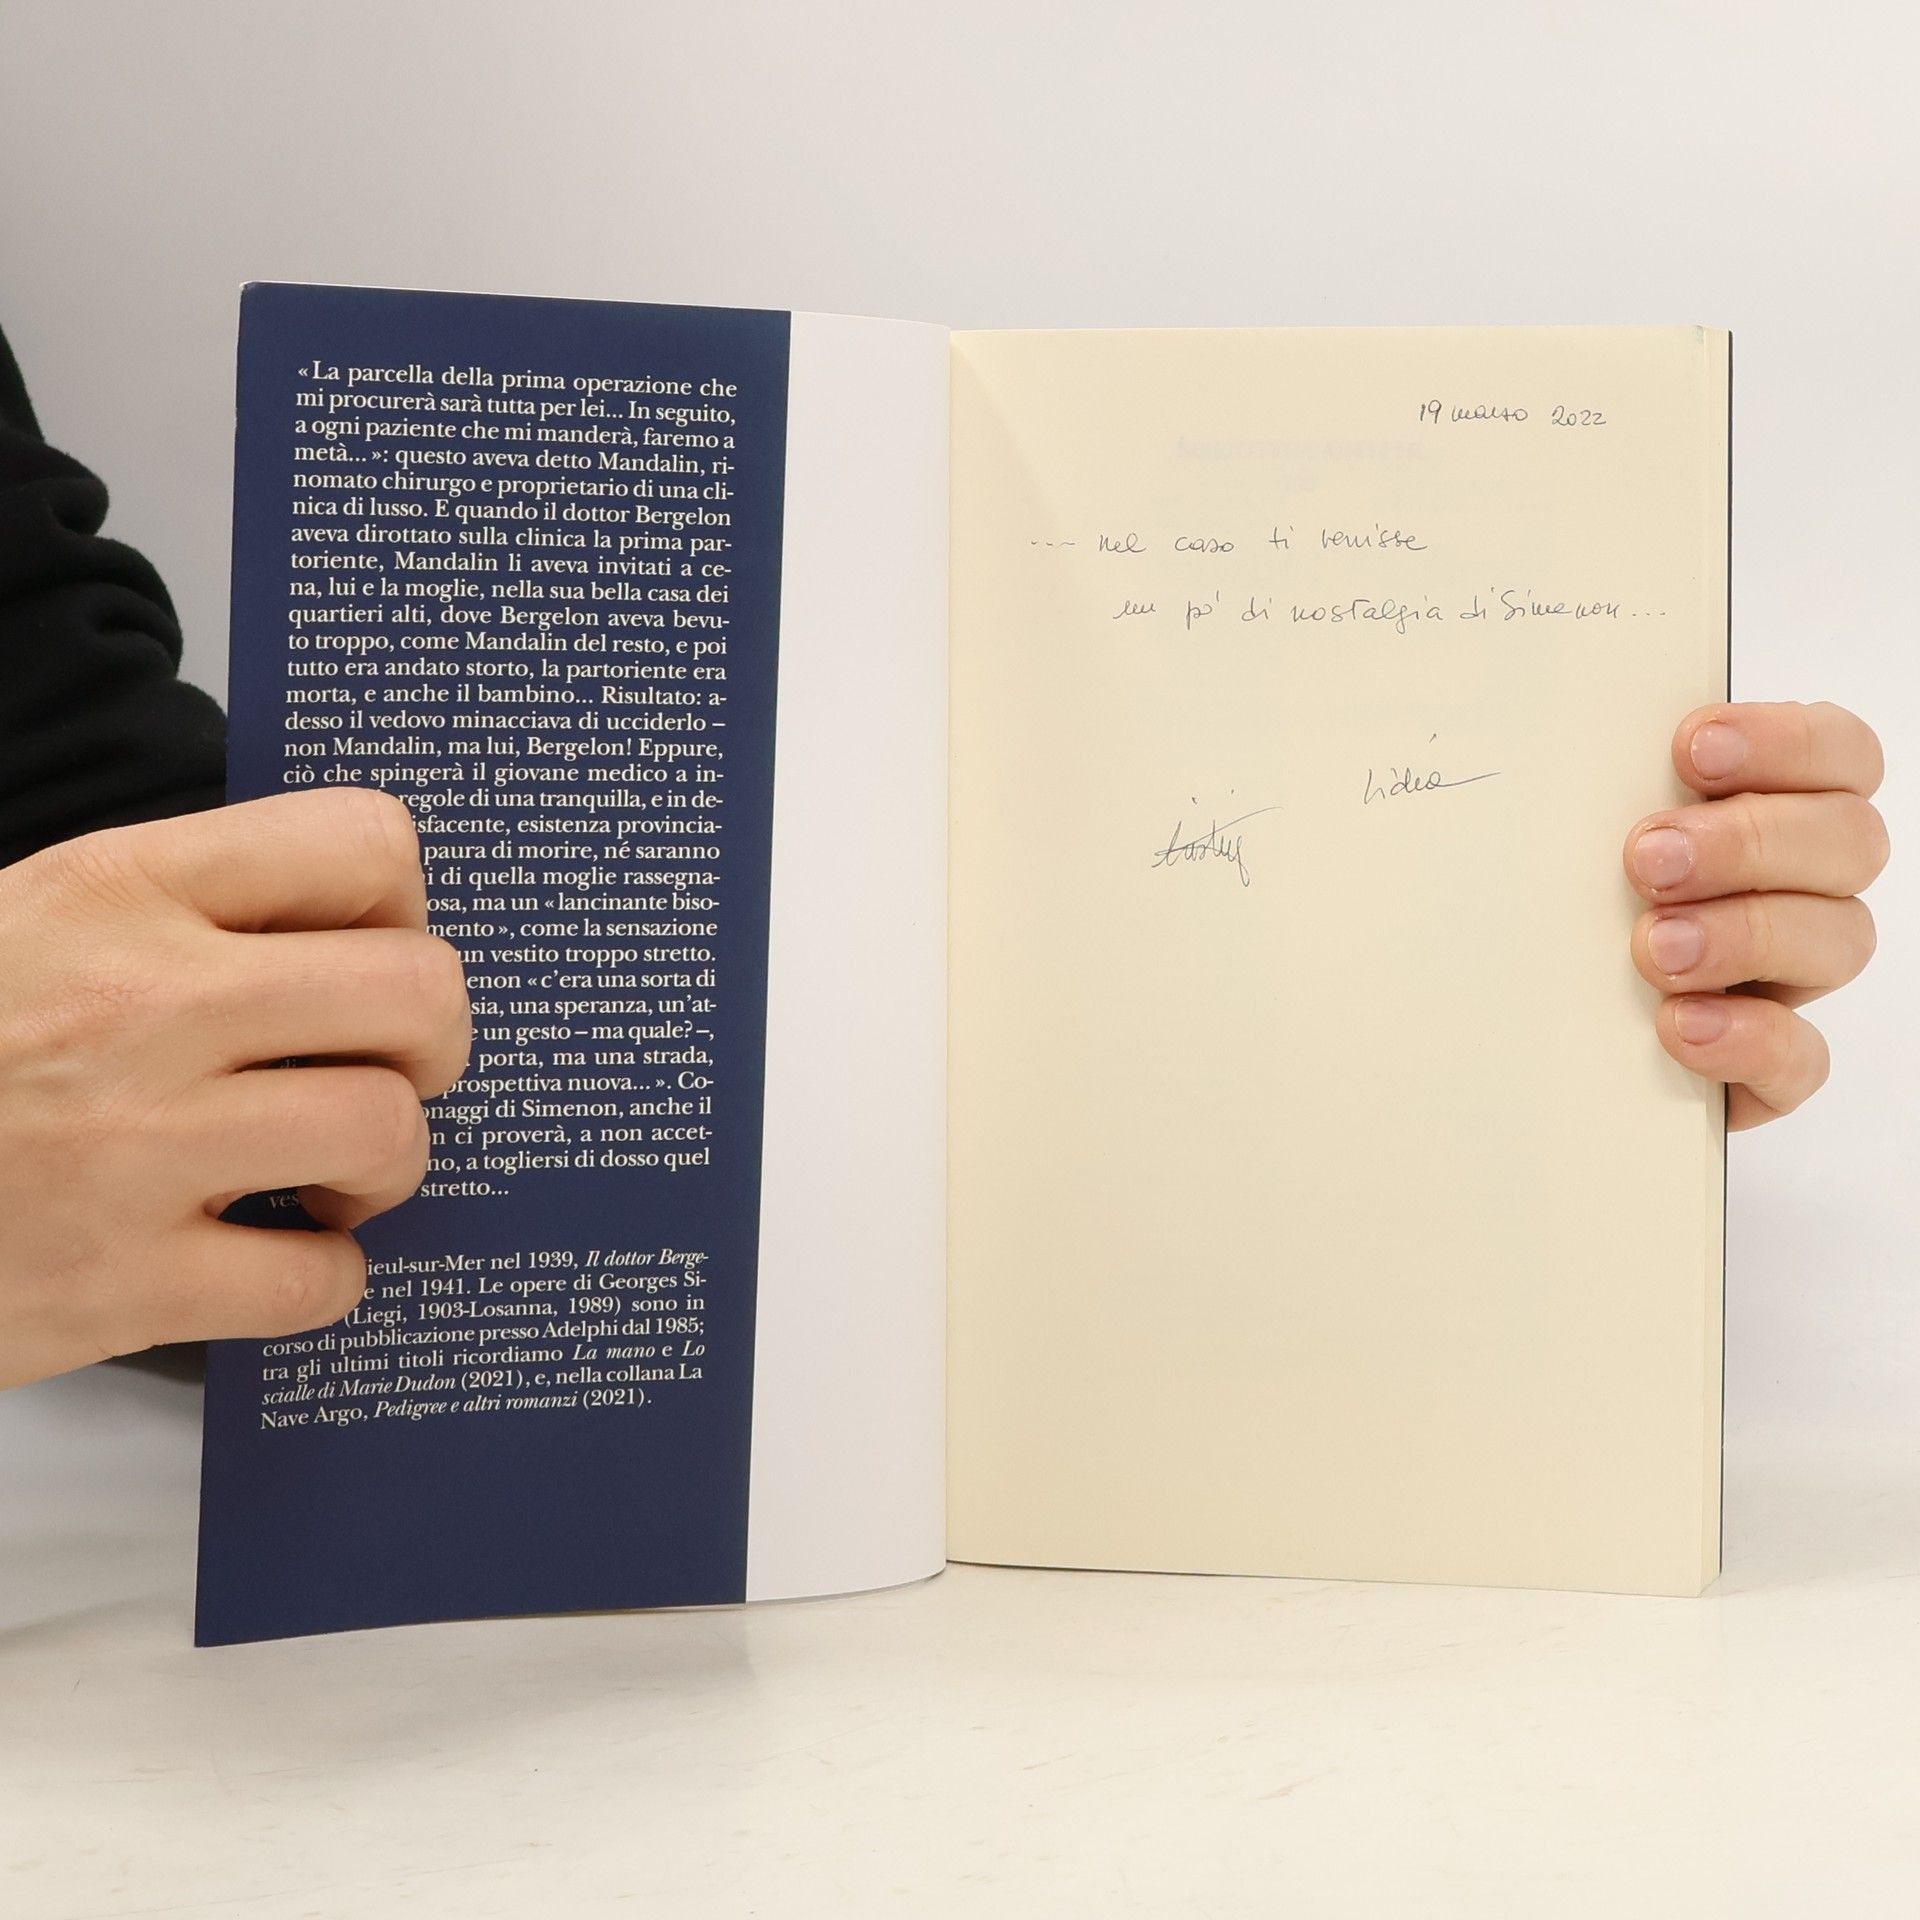 «La parcella della prima operazione che
mi procurerà sarà tutta per lei... In seguito,
a ogni paziente che mi manderà, faremo a
metà...»: questo aveva detto Mandalin, ri-
nomato chirurgo e proprietario di una cli-
nica di lusso. E quando il dottor Bergelon
aveva dirottato sulla clinica la prima par-
toriente, Mandalin li aveva invitati a ce-
na, lui e la moglie, nella sua bella casa dei
quartieri alti, dove Bergelon aveva bevu-
to troppo, come Mandalin del resto, e poi
tutto era andato storto, la partoriente era
morta, e anche il bambino... Risultato: a-
desso il vedovo minacciava di ucciderlo –
non Mandalin, ma lui, Bergelon! Eppure,
ciò che spingerà il giovane medico a in-
regole di una tranquilla, e in de-
isfacente, esistenza provincia-
paura di morire, né saranno
i di quella moglie rassegna-
osa, ma un «lancinante biso-
mento», come la sensazione
un vestito troppo stretto.
enon «c'era una sorta di
sia, una speranza, un'at-
e un gesto – ma quale? –,
porta, ma una strada,
prospettiva nuova...». Co-
onaggi di Simenon, anche il
n ci proverà, a non accet-
no, a togliersi di dosso quel
ves stretto...
ieul-sur-Mer nel 1939, Il dottor Berge-
e nel 1941. Le opere di Georges Si-
(Liegi, 1903-Losanna, 1989) sono in
corso di pubblicazione presso Adelphi dal 1985;
tra gli ultimi titoli ricordiamo La mano e Lo
scialle di Marie Dudon (2021), e, nella collana La
Nave Argo, Pedigree e altri romanzi (2021).
19 marzo 2022
---- nel caso ti venisse
un pò di nostalgia di Simenon...
Lidia